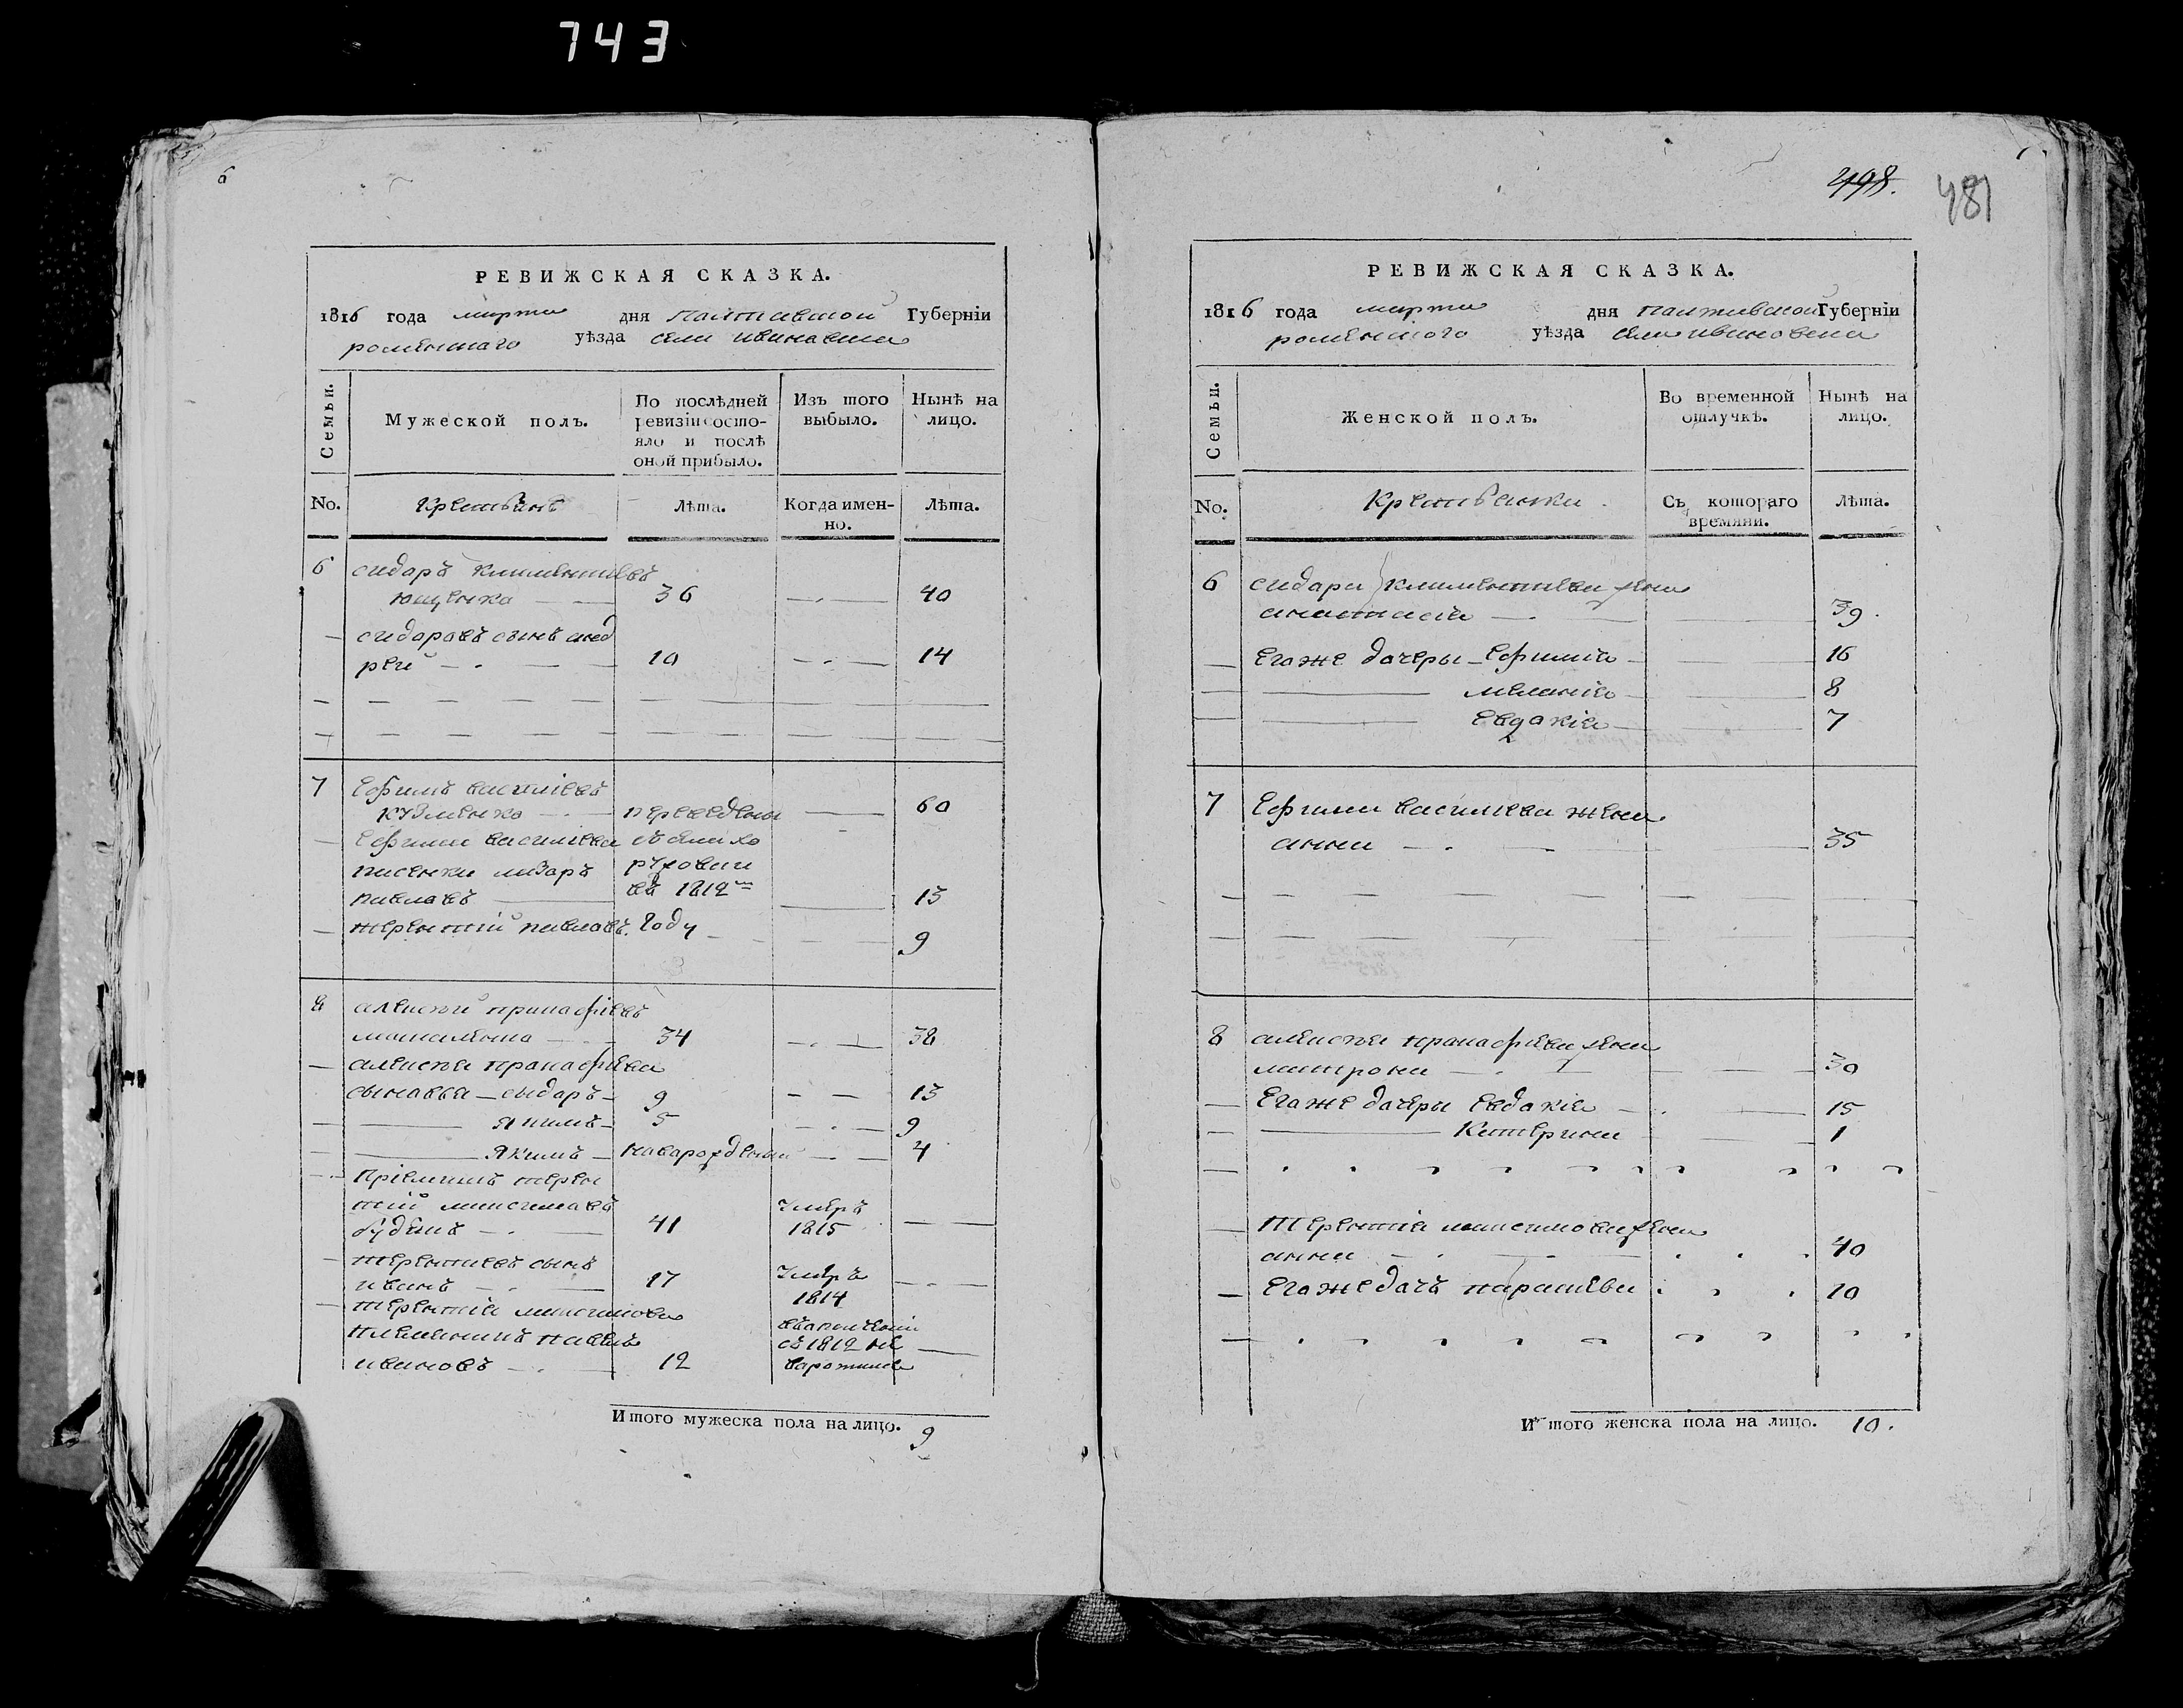 743
6
РЕВИЖСКАЯ СКАЗКА.
1816 года марта дня Полтавской Губерніи
роменскаго уѣзда села
Семьи.
Мужеской полъ.
По послѣдней ревизіи состояло и послѣ оной прибыло.
Изъ того выбыло.
Нынѣ на лицо.
No.
Крестьяне
Лѣта.
Когда именно.
Лѣта.
6 сидаръ климентиевъ
ющенко 36 40
сидоровъ сынъ анд
рей 10 14
7 Ефимъ василіевъ
кузменко переведены 60
Ефима василиева
пасенки лазаръ
павловъ въ 1812 13
терентій павловъ году 9
8 алексей
34 38
алексея
сыновья сыдаръ 9 13
якимъ 5 9
якимъ новорожденый 4
Пріемышъ терен
тий максимовъ умеръ
41 1815
терентиевъ сынъ
иванъ 17 умеръ
1814
терентія максимова
племенникъ павелъ съ 1812 не
ивановъ 12
Итого мужеска пола на лицо. 9
498.
481
РЕВИЖСКАЯ СКАЗКА.
1816 года марта дня полтавской Губерніи
роменского уѣзда села
Семьи.
Женской полъ.
Во временной отлучкѣ.
Нынѣ на лицо.
No.
Крестьянки
Съ котораго времяни.
Лѣта.
6 сидара климентиева жена
анастасія 39.
Егоже дочеры Ефимія 16
меланія 8
Евдокія 7
7 Ефима василиева жена
анна 35
8 алексея жена
матрона 30
Егоже дочеры Евдокія 15
Катерина 1
Терентія максимова жена
анна 40
Егоже дочъ парасieва 10
Итого женска пола на лицо. 10.